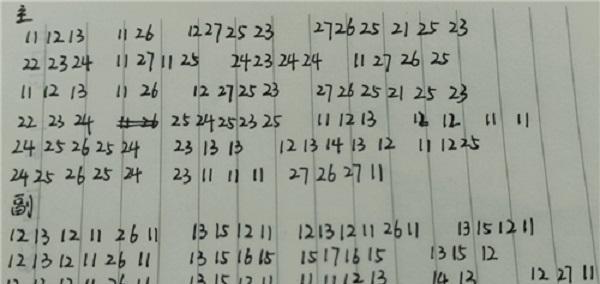 主
11 12 13 11 26 12 27 25 23 27 26 25 21 25 23
22 23 24 11 27 11 25 24 23 24 24 11 27 26 25
11 12 13 11 26 12 27 25 23 27 26 25 21 25 23
22 23 24 25 24 25 23 25 11 12 13 12 12 11 11
24 25 26 25 24 23 13 13 12 13 14 13 12 11 12 25
24 25 26 25 24 23 11 11 11 27 26 27 11
副
12 13 12 11 26 11 13 15 12 11 12 13 12 11 26 11 13 15 12 11
12 13 12 11 26 11 13 15 16 15 15 17 16 15 13 15 12
12 13 12 11 26 11 13 15 12 11 11 11 12 13 14 13 12 27 11